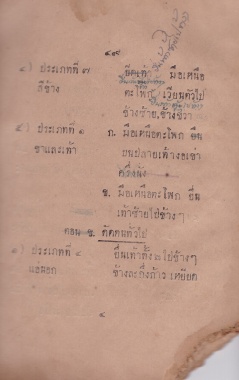 ๔) ประเภทที่ ๗ ยืดเท้า มือเหนือ
สีข้าง ตะโพก เวียนตัวไป
ข้างซ้าย, ข้างขวา
๕) ประเภทที่ ๑ ก. มือเหนือตะโพก ยืน
ขาและเท้า บนปลายเท้างอเข่า
ครึ่งนั่ง
ข. มือเหนือตะโพก ยื่น
เท้าซ้ายไปข้างๆ
ตอน ข. ตัดตนทั่วไป
๑) ประเภทที่ ๔ ยื่นเท้าทั้ง ๒ ไปข้างๆ
แอ่นอก ข้างละกึ่งก้าว เหยียด
๔